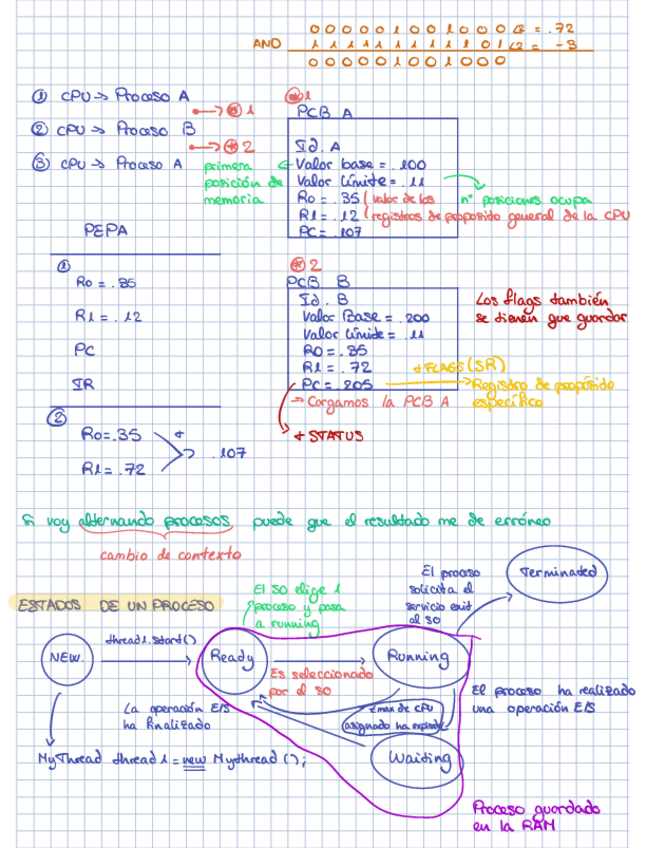 0 0 0 0 0 1 0 0 1 0 0 0 (2 = .72
AND 1 1 1 1 1 1 1 1 1 1 0 1 (2 = -3
0 0 0 0 0 1 0 0 1 0 0 0
① CPU → Proceso A
→ ⊛ 1
② CPU → Proceso B
→ ⊛ 2
③ CPU → Proceso A
primera
posición de
memoria
⊛1
PCB A
Id. A
Valor base = .100
Valor límite = .11
R0 = .35 (valor de los
R1 = .12 (registros de propósito general de la CPU
PC = .107
nº posiciones ocupa
PEPA
①
R0 = .85
R1 = .12
PC
IR
②
R0=.35 +
.107
R1=.72
⊛2
PCB B
Id. B
Valor Base = .200
Valor límite = .11
R0 = .85
R1 = .72
PC = .205
+ FLAGS (SR)
→ Registro de propósito
específico
→ Cargamos la PCB A
+ STATUS
Los flags también
se tienen que guardar
Si voy alternando procesos, puede que el resultado me de erróneo
cambio de contexto
ESTADOS DE UN PROCESO
NEW.
thread1.start()
El SO elige 1
proceso y pasa
a running
Ready
Es seleccionado
por el SO
Running
El proceso
solicita el
servicio exit
al SO
Terminated
El proceso ha realizado
una operación E/S
tmax de CPU
asignado ha expirado
Waiting
La operación E/S
ha finalizado
MyThread thread1 = new Mythread ();
Proceso guardado
en la RAM